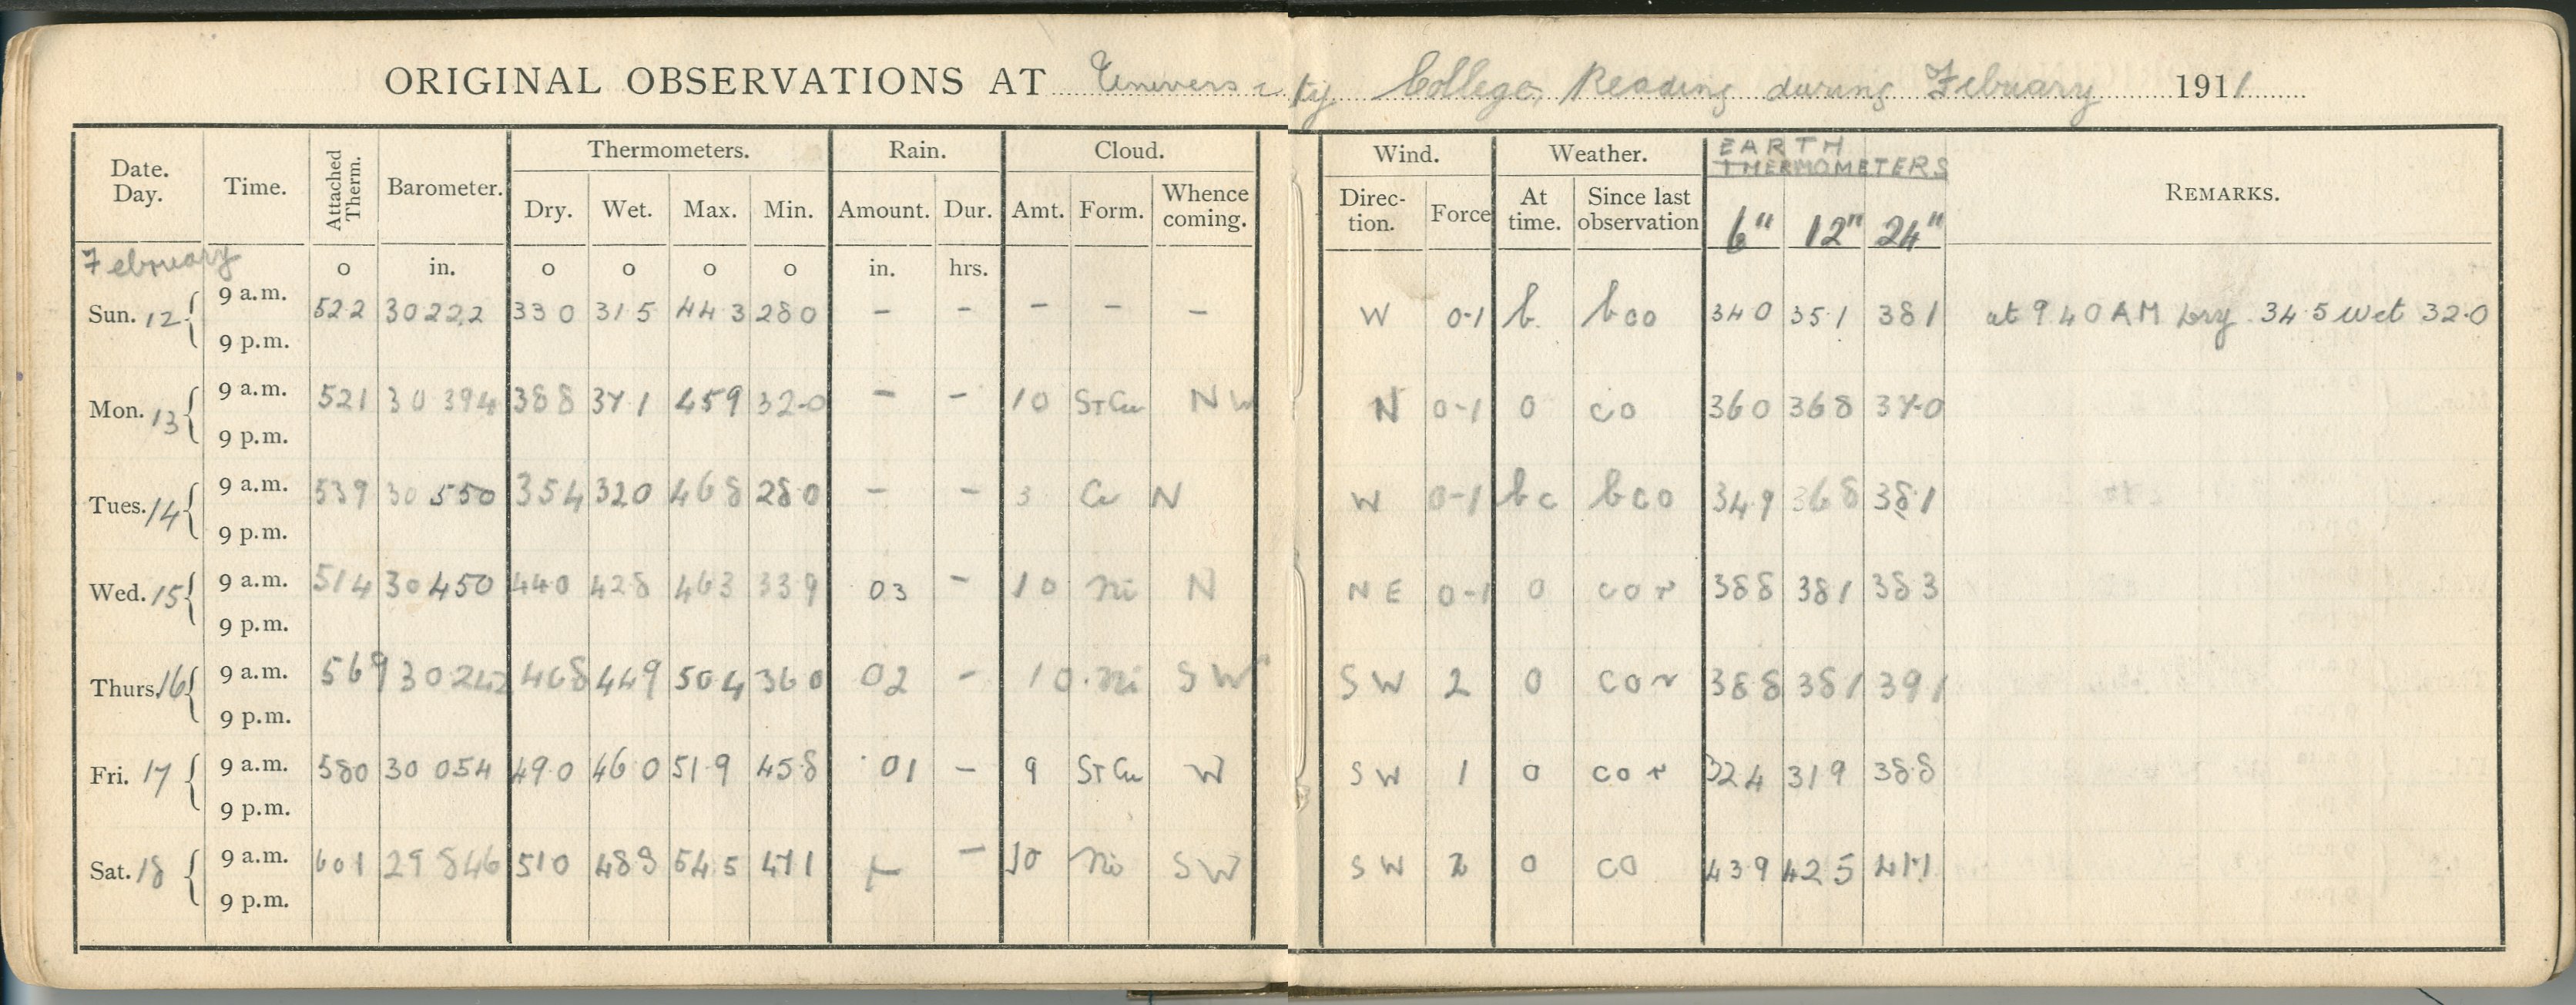 ORIGINAL OBSERVATIONS AT University College, Reading during February 1911
Date. Day. Time. Attached Therm. Barometer. Thermometers. Rain. Cloud. Wind. Weather. EARTH THERMOMETERS REMARKS.
Dry. Wet. Max. Min. Amount. Dur. Amt. Form. Whence coming. Direc-tion. Force At time. Since last observation 6" 12" 24"
February o in. o o o o in. hrs.
Sun. 12 9 a.m. 52 2 30 222 33 0 31 5 44 3 28 0 – – – – – W 0-1 b. bco 34 0 35 1 38 1 at 9 40 AM Dry 34 5 Wet 32.0
9 p.m.
Mon. 13 9 a.m. 52 1 30 394 38 8 37 1 45 9 32.0 – – 10 StCu NW N 0-1 o co 36 0 36 8 37.0
9 p.m.
Tues. 14 9 a.m. 53 9 30 550 35 4 32 0 46 8 28 0 – – 3 Cu N W 0-1 bc bco 34 9 36 8 38 1
9 p.m.
Wed. 15 9 a.m. 51 4 30 450 44 0 42 8 46 3 33 9 03 – 10 Ni N NE 0-1 o cor 38 8 38 1 38 3
9 p.m.
Thurs. 16 9 a.m. 56 9 30 242 46 8 44 9 50 4 36 0 02 – 10 Ni SW SW 2 o cor 38 8 38 1 39 1
9 p.m.
Fri. 17 9 a.m. 58 0 30 054 49 0 46 0 51 9 45 8 .01 – 9 StCu W SW 1 o cor 32 4 31 9 38.8
9 p.m.
Sat. 18 9 a.m. 60 1 29 846 51 0 54 5 47 1 – 10 Ni SW SW 2 o co 43 9 42 5 41.1
9 p.m.